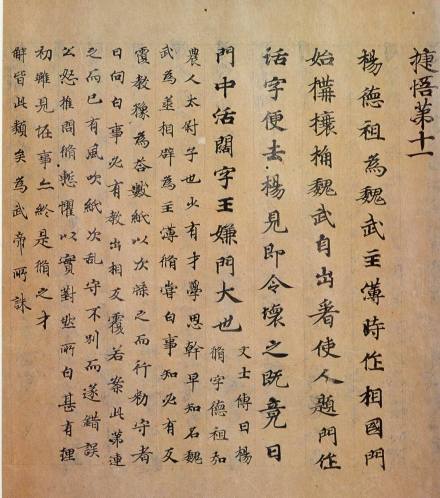 捷悟第十一
楊德祖為魏武主簿時作相國門
始搆榱桷魏武自出看使人題門作
活字便去楊見即令壞之既竟曰
門中活闊字王嫌門大也
文士傳曰楊
脩字德祖弘
農人太尉子也少有才學思幹早知名魏
武為丞相辟為主簿脩嘗白事知必有反
覆教豫為答數紙以次牒之而行勑守者
曰向白事必有教出相反覆若案此第連
之而已有風吹紙次乱守不別而遂錯誤
公怒推問脩慙懼以實對然所白甚有理
初雖見怪事亦終是脩之才
解皆此類矣為武帝所誅